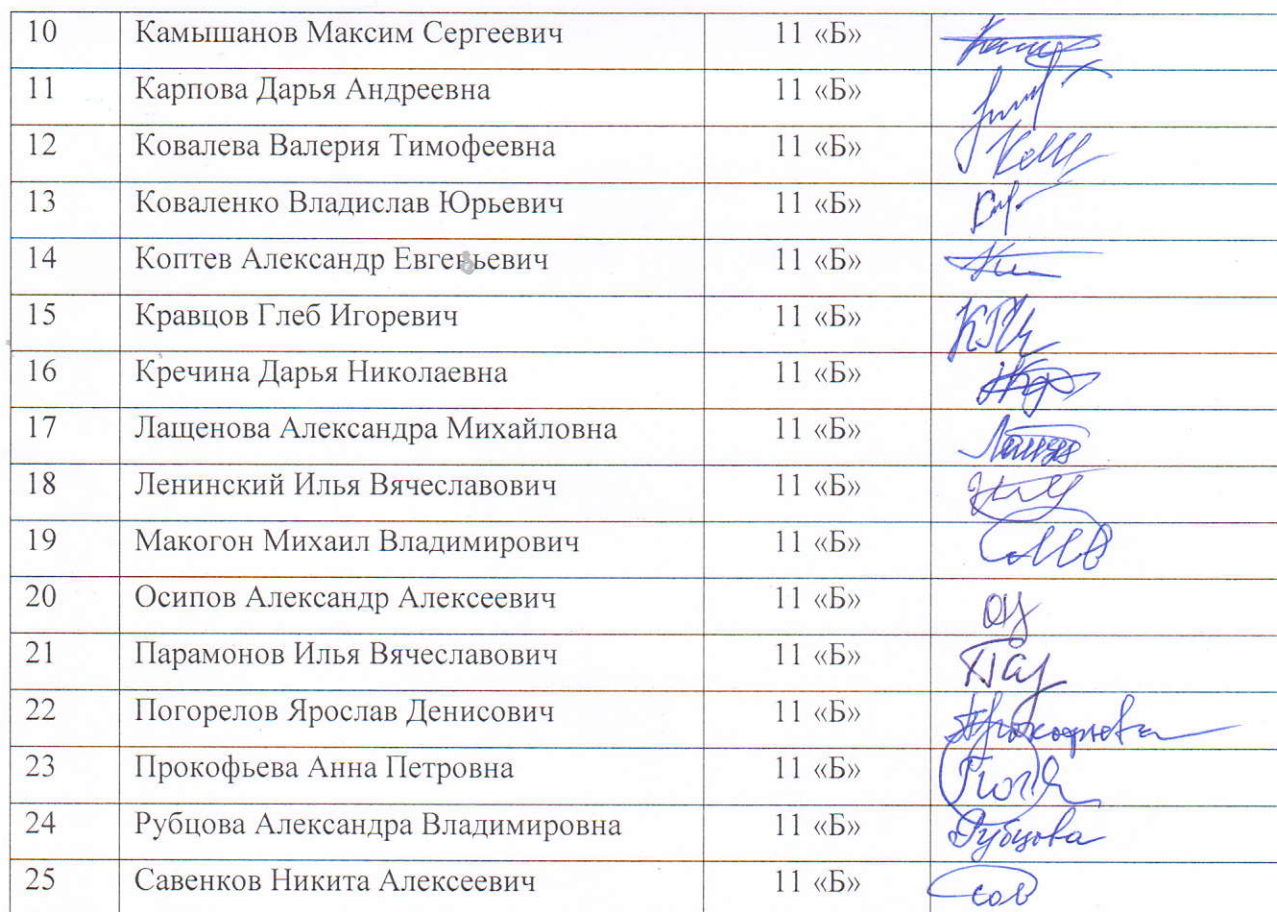 10 Камышанов Максим Сергеевич 11 «Б»
11 Карпова Дарья Андреевна 11 «Б»
12 Ковалева Валерия Тимофеевна 11 «Б»
13 Коваленко Владислав Юрьевич 11 «Б»
14 Коптев Александр Евгеньевич 11 «Б»
15 Кравцов Глеб Игоревич 11 «Б»
16 Кречина Дарья Николаевна 11 «Б»
17 Лащенова Александра Михайловна 11 «Б»
18 Ленинский Илья Вячеславович 11 «Б»
19 Макогон Михаил Владимирович 11 «Б»
20 Осипов Александр Алексеевич 11 «Б»
21 Парамонов Илья Вячеславович 11 «Б»
22 Погорелов Ярослав Денисович 11 «Б» Прокофьева
23 Прокофьева Анна Петровна 11 «Б»
24 Рубцова Александра Владимировна 11 «Б» Рубцова
25 Савенков Никита Алексеевич 11 «Б» Сав